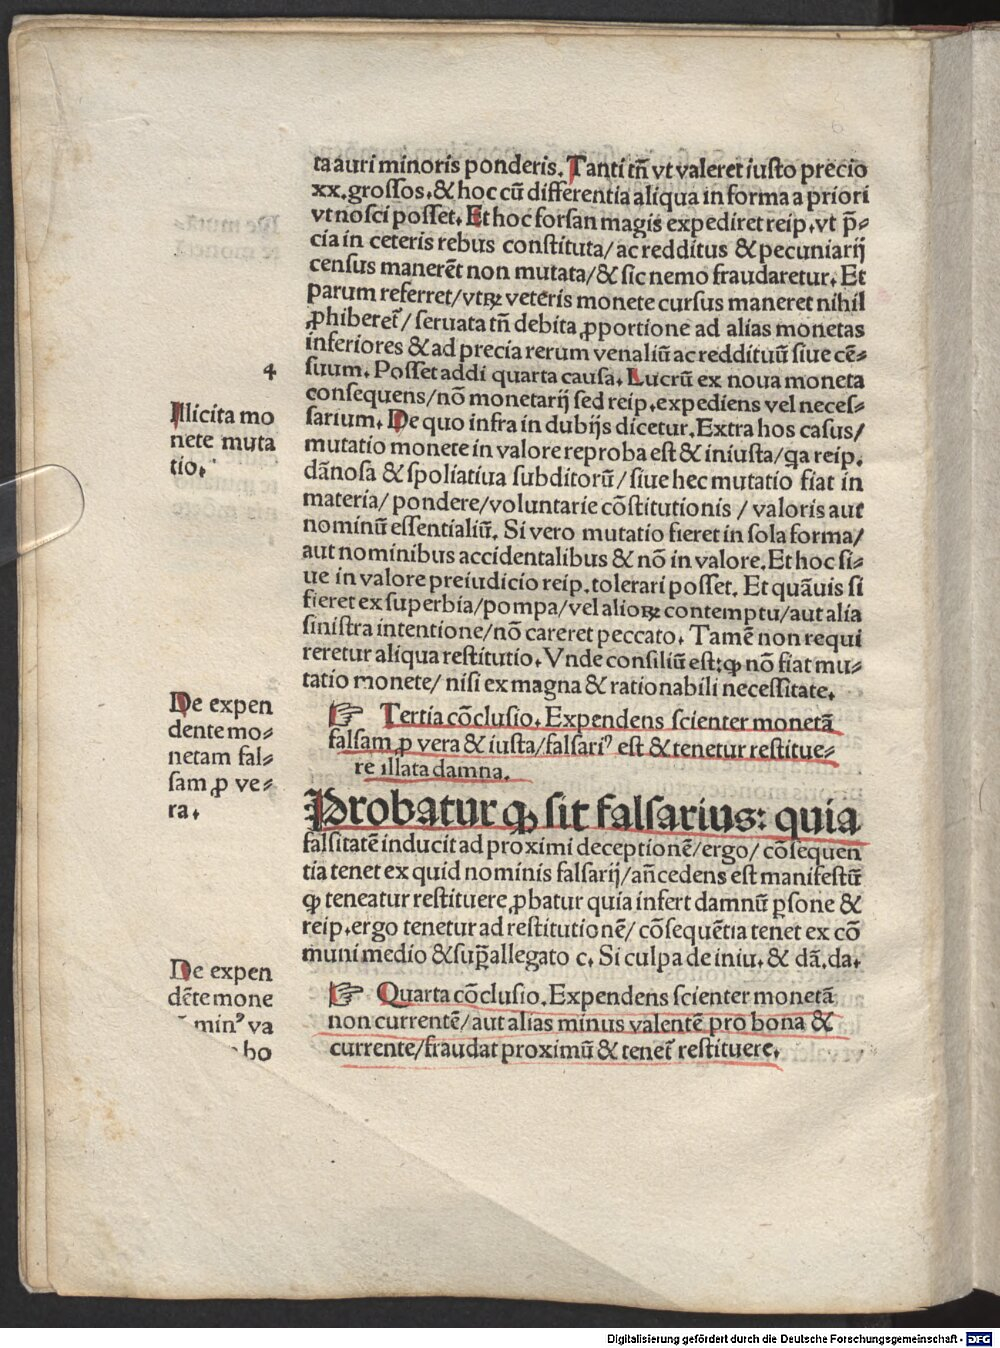 ta auri minoris ponderis. Tanti tñ vt valeret iusto precio
xx. grossos. & hoc cũ differentia aliqua in forma a priori
vt nosci posset. Et hoc forsan magis expediret reip. vt p̃⸗
cia in ceteris rebus constituta/ ac redditus & pecuniarij
census manerẽt non mutata/ & sic nemo fraudaretur. Et
parum referret/ vtrꝫ veteris monete cursus maneret nihil
ꝓhiberet᷑/ seruata tñ debita ꝓportione ad alias monetas
inferiores & ad precia rerum venaliũ ac reddituũ siue cẽ⸗
suum. Posset addi quarta causa. Lucrũ ex noua moneta
consequens/ nõ monetarij sed reip. expediens vel neces⸗
sarium. De quo infra in dubijs dicetur. Extra hos casus/
mutatio monete in valore reproba est & iniusta/ q̃a reip.
dãnosa & spoliatiua subditorũ/ siue hec mutatio fiat in
materia/ pondere/ voluntarie cõstitutionis / valoris aut
nominũ essentialiũ. Si vero mutatio fieret in sola forma/
aut nominibus accidentalibus & nõ in valore. Et hoc si⸗
ue in valore preiudicio reip. tolerari posset. Et quãuis si
fieret ex superbia/ pompa/ vel alioꝝ contemptu/ aut alia
sinistra intentione/ nõ careret peccato. Tamẽ non requi
reretur aliqua restitutio. Vnde consiliũ est: ꝙ nõ fiat mu⸗
tatio monete/ nisi ex magna & rationabili necessitate.
4
Illicita mo
nete muta
tio.
☞ Tertia cõclusio. Expendens scienter monetã
falsam ꝓ vera & iusta/ falsariꝰ est & tenetur restitue⸗
re illata damna.
De expen
dente mo⸗
netam fal⸗
sam ꝓ ve⸗
ra.
Probatur ꝙ sit falsarius: quia
falsitatẽ inducit ad proximi deceptionẽ/ ergo/ cõsequen
tia tenet ex quid nominis falsarij/ añcedens est manifestũ
ꝙ teneatur restituere ꝓbatur quia infert damnũ ꝑsone &
reip. ergo tenetur ad restitutionẽ/ cõsequẽtia tenet ex cõ
muni medio & sup̃allegato c. Si culpa de iniu. & dã. da.
☞ Quarta cõclusio. Expendens scienter monetã
non currentẽ/ aut alias minus valentẽ pro bona &
currente/ fraudat proximũ & tenet᷑ restituere.
De expen
dẽte mone
minꝰ va
bo
Digitalisierung gefördert durch die Deutsche Forschungsgemeinschaft - DFG